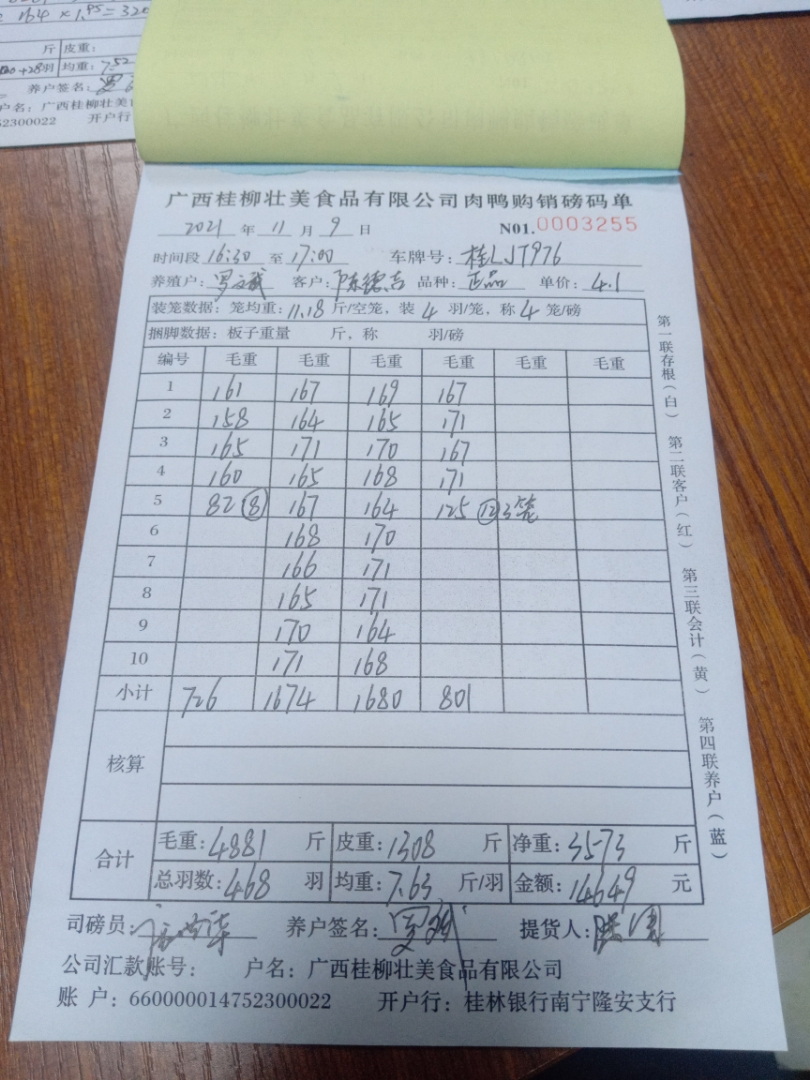 164×1.95=320
斤 皮重:
+28羽 均重:7.52
养户签名:
户名:广西桂柳壮美
52300022 开户行
广西桂柳壮美食品有限公司肉鸭购销磅码单
2021 年 11 月 9 日 N01.0003255
时间段 16:30 至 17:00 车牌号: 桂LJT976
养殖户: 罗斌 客户: 陈德吉 品种: 正品 单价: 4.1
装笼数据: 笼均重: 11.18 斤/空笼, 装 4 羽/笼, 称 4 笼/磅
捆脚数据: 板子重量 斤, 称 羽/磅
编号 毛重 毛重 毛重 毛重 毛重 毛重
1 161 167 169 167
2 158 164 165 171
3 165 171 170 167
4 160 165 168 171
5 82 ⑧ 167 164 125 ⑫ 3笼
6 168 170
7 166 171
8 165 171
9 170 164
10 171 168
小计 726 1674 1680 801
核算
合计 毛重: 4881 斤 皮重: 1308 斤 净重: 3573 斤
总羽数: 468 羽 均重: 7.63 斤/羽 金额: 14649 元
司磅员: 养户签名: 提货人:
公司汇款账号: 户名: 广西桂柳壮美食品有限公司
账 户: 660000014752300022 开户行: 桂林银行南宁隆安支行
第一联存根(白) 第二联客户(红) 第三联会计(黄) 第四联养户(蓝)